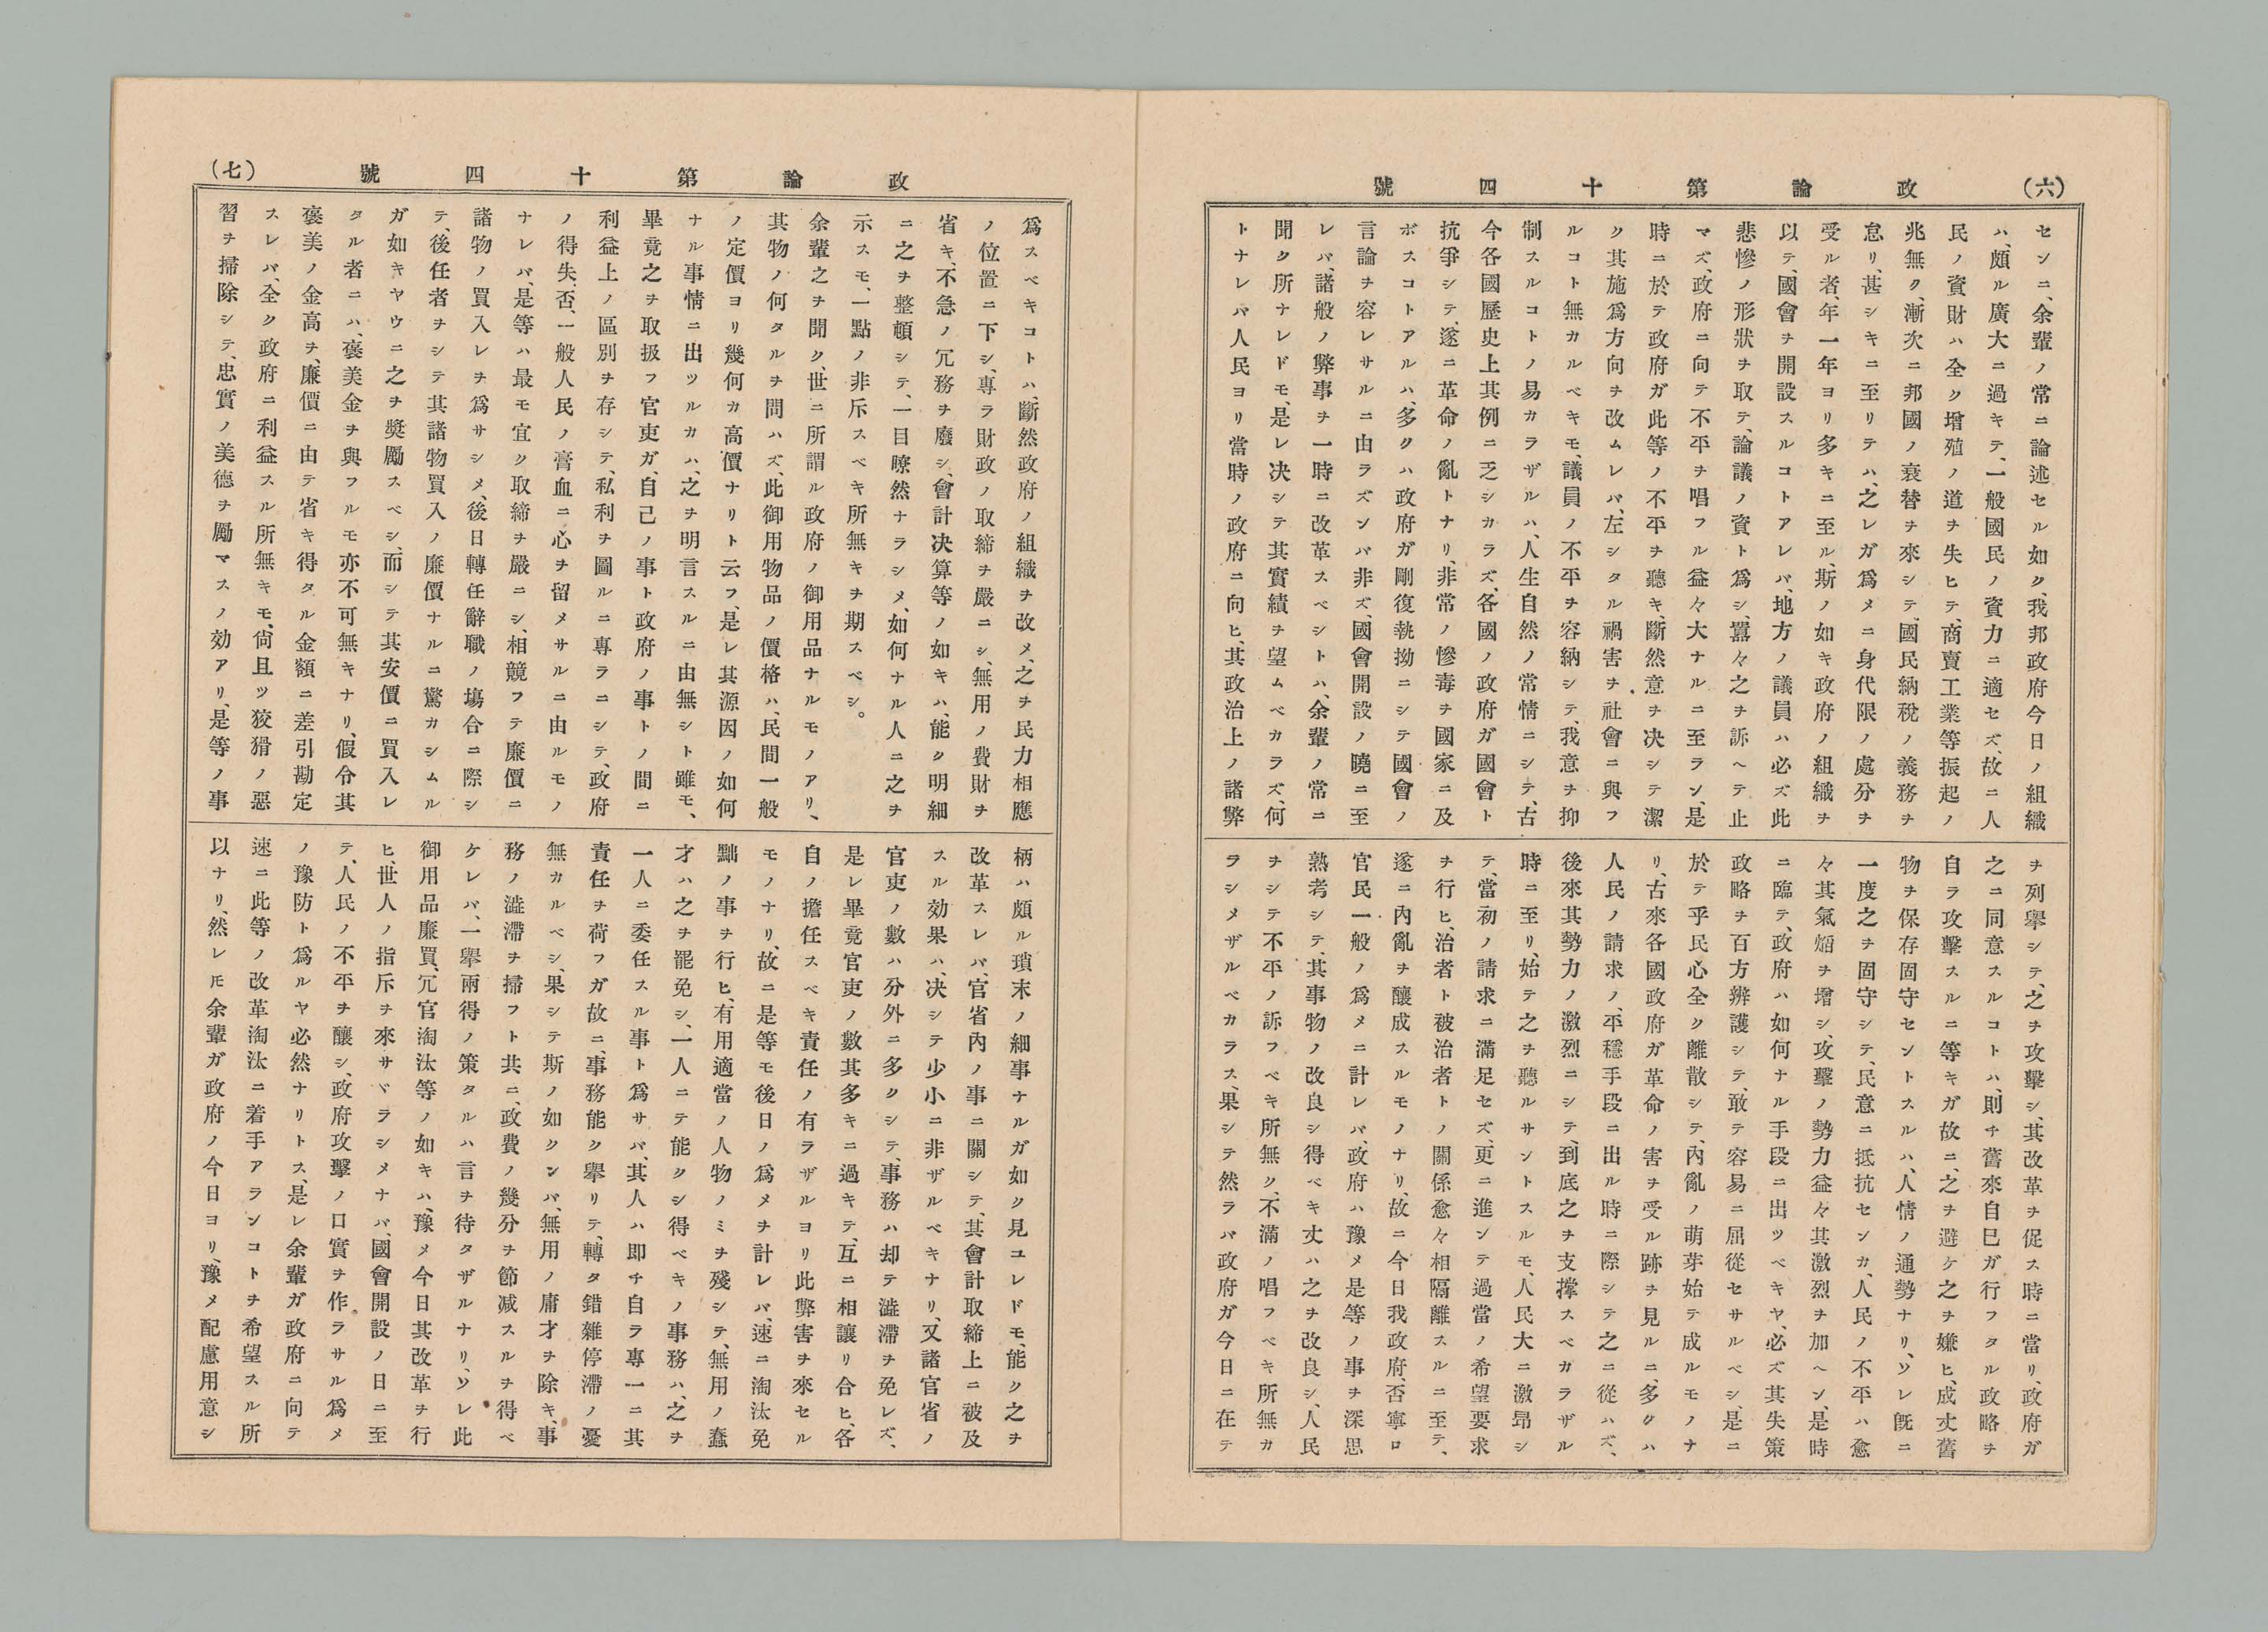 (六)
政論第十四號
センニ、余輩ノ常ニ論述セル如ク、我邦政府今日ノ組織
ハ、頗ル廣大ニ過キテ、一般國民ノ資力ニ適セズ、故ニ人
民ノ資財ハ全ク增殖ノ道ヲ失ヒテ、商賣工業等振起ノ
兆無ク、漸次ニ邦國ノ衰替ヲ來シテ、國民納稅ノ義務ヲ
怠リ、甚シキニ至リテハ、之レガ爲メニ身代限ノ處分ヲ
受ル者、年一年ヨリ多キニ至ル、斯ノ如キ政府ノ組織ヲ
以テ、國會ヲ開設スルコトアレバ、地方ノ議員ハ必ズ此
悲慘ノ形狀ヲ取テ、論議ノ資ト爲シ、囂々之ヲ訴ヘテ止
マズ、政府ニ向テ不平ヲ唱フル益々大ナルニ至ラン、是
時ニ於テ政府ガ此等ノ不平ヲ聽キ、斷然意ヲ决シテ潔
ク其施爲方向ヲ改ムレバ、左シタル禍害ヲ社會ニ與フ
ルコト無カルベキモ、議員ノ不平ヲ容納シテ、我意ヲ抑
制スルコトノ易カラザルハ、人生自然ノ常情ニシテ、古
今各國歷史上其例ニ乏シカラズ、各國ノ政府ガ國會ト
抗爭シテ、遂ニ革命ノ亂トナリ、非常ノ慘毒ヲ國家ニ及
ボスコトアルハ、多クハ政府ガ剛復執拗ニシテ國會ノ
言論ヲ容レサルニ由ラズンバ非ズ、國會開設ノ曉ニ至
レバ、諸般ノ弊事ヲ一時ニ改革スベシトハ、余輩ノ常ニ
聞ク所ナレドモ、是レ决シテ其實績ヲ望ムベカラズ、何
トナレバ人民ヨリ當時ノ政府ニ向ヒ、其政治上ノ諸弊
ヲ列舉シテ、之ヲ攻擊シ、其改革ヲ促ス時ニ當リ、政府ガ
之ニ同意スルコトハ、則チ舊來自已ガ行フタル政略ヲ
自ラ攻擊スルニ等キガ故ニ、之ヲ避ケ之ヲ嫌ヒ、成丈舊
物ヲ保存固守セントスルハ、人情ノ通勢ナリ、ソレ旣ニ
一度之ヲ固守シテ、民意ニ抵抗センカ、人民ノ不平ハ愈
々其氣焰ヲ增シ、攻擊ノ勢力益々其激烈ヲ加ヘン、是時
ニ臨テ、政府ハ如何ナル手段ニ出ツベキヤ、必ズ其失策
政略ヲ百方辨護シテ、敢テ容易ニ屈從セサルベシ、是ニ
於テ乎民心全ク離散シテ、內亂ノ萌芽始テ成ルモノナ
リ、古來各國政府ガ革命ノ害ヲ受ル跡ヲ見ルニ、多クハ
人民ノ請求ノ、平穩手段ニ出ル時ニ際シテ之ニ從ハズ、
後來其勢力ノ激烈ニシテ、到底之ヲ支撐スベカラザル
時ニ至リ、始テ之ヲ聽ルサントスルモ、人民大ニ激昂シ
テ、當初ノ請求ニ滿足セズ、更ニ進ンテ過當ノ希望要求
ヲ行ヒ、治者ト被治者トノ關係愈々相隔離スルニ至テ、
遂ニ內亂ヲ釀成スルモノナリ、故ニ今日我政府、否寧ロ
官民一般ノ爲メニ計レバ、政府ハ豫メ是等ノ事ヲ深思
熟考シテ、其事物ノ改良シ得ベキ丈ハ之ヲ改良シ、人民
ヲシテ不平ノ訴フベキ所無ク、不滿ノ唱フベキ所無カ
ラシメザルベカラス、果シテ然ラバ政府ガ今日ニ在テ
(七)
政論第十四號
爲スベキコトハ、斷然政府ノ組織ヲ改メ、之ヲ民力相應
ノ位置ニ下シ、專ラ財政ノ取締ヲ嚴ニシ、無用ノ費財ヲ
省キ、不急ノ冗務ヲ廢シ、會計决算等ノ如キハ、能ク明細
ニ之ヲ整頓シテ、一目瞭然ナラシメ、如何ナル人ニ之ヲ
示スモ、一點ノ非斥スベキ所無キヲ期スベシ。
余輩之ヲ聞ク、世ニ所謂ル政府ノ御用品ナルモノアリ、
其物ノ何タルヲ問ハズ、此御用物品ノ價格ハ、民間一般
ノ定價ヨリ幾何カ高價ナリト云フ、是レ其源因ノ如何
ナル事情ニ出ツルカハ、之ヲ明言スルニ由無シト雖モ、
畢竟之ヲ取扱フ官吏ガ、自己ノ事ト政府ノ事トノ間ニ
利益上ノ區別ヲ存シテ、私利ヲ圖ルニ專ラニシテ、政府
ノ得失、否、一般人民ノ膏血ニ心ヲ留メサルニ由ルモノ
ナレバ、是等ハ最モ宜ク取締ヲ嚴ニシ、相競フテ廉價ニ
諸物ノ買入レヲ爲サシメ、後日轉任辭職ノ塲合ニ際シ
テ、後任者ヲシテ其諸物買入ノ廉價ナルニ驚カシムル
ガ如キヤウニ之ヲ奬勵スベシ、而シテ其安價ニ買入レ
タル者ニハ、褒美金ヲ與フルモ亦不可無キナリ、假令其
褒美ノ金高ヲ、廉價ニ由テ省キ得タル金額ニ差引勘定
スレバ、全ク政府ニ利益スル所無キモ、尙且ツ狡猾ノ惡
習ヲ掃除シテ、忠實ノ美德ヲ勵マスノ効アリ、是等ノ事
柄ハ頗ル瑣末ノ細事ナルガ如ク見ユレドモ、能ク之ヲ
改革スレバ、官省內ノ事ニ關シテ、其會計取締上ニ被及
スル効果ハ、决シテ少小ニ非ザルベキナリ、又諸官省ノ
官吏ノ數ハ分外ニ多クシテ、事務ハ却テ澁滯ヲ免レズ、
是レ畢竟官吏ノ數其多キニ過キテ、互ニ相讓リ合ヒ、各
自ノ擔任スベキ責任ノ有ラザルヨリ此弊害ヲ來セル
モノナリ、故ニ是等モ後日ノ爲メヲ計レバ、速ニ淘汰免
黜ノ事ヲ行ヒ、有用適當ノ人物ノミヲ殘シテ、無用ノ蠢
才ハ之ヲ罷免シ、一人ニテ能クシ得ベキノ事務ハ、之ヲ
一人ニ委任スル事ト爲サバ、其人ハ即チ自ラ專一ニ其
責任ヲ荷フガ故ニ、事務能ク擧リテ、轉タ錯雜停滯ノ憂
無カルベシ、果シテ斯ノ如クンバ、無用ノ庸才ヲ除キ、事
務ノ澁滯ヲ掃フト共ニ、政費ノ幾分ヲ節减スルヲ得ベ
ケレバ、一擧兩得ノ策タルハ言ヲ待タザルナリ、ソレ此
御用品廉買、冗官淘汰等ノ如キハ、豫メ今日其改革ヲ行
ヒ、世人ノ指斥ヲ來サヾラシメナバ、國會開設ノ日ニ至
テ、人民ノ不平ヲ釀シ、政府攻擊ノ口實ヲ作ラサル爲メ
ノ豫防ト爲ルヤ必然ナリトス、是レ余輩ガ政府ニ向テ
速ニ此等ノ改革淘汰ニ着手アランコトヲ希望スル所
以ナリ、然レ𪜈余輩ガ政府ノ今日ヨリ、豫メ配慮用意シ